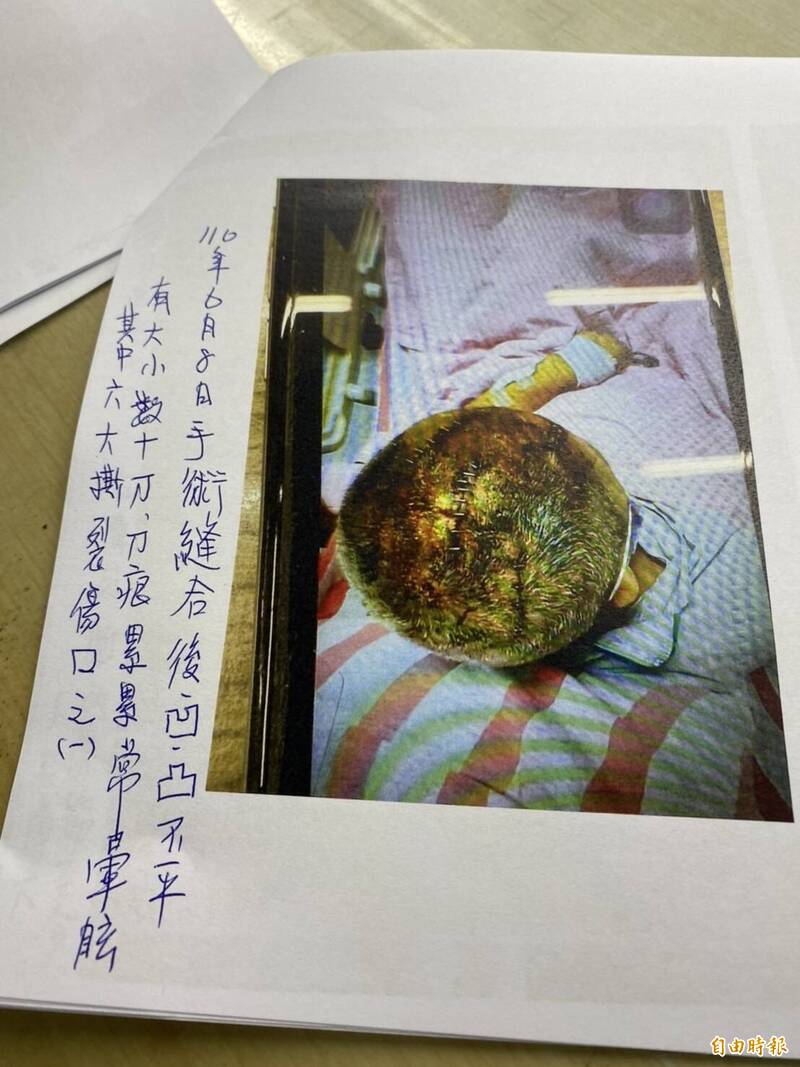 110年6月8日手術縫合後凹凸不平
有大小數十刀、刀痕累累常暈眩
其中六大撕裂傷口之(一)
自由時報